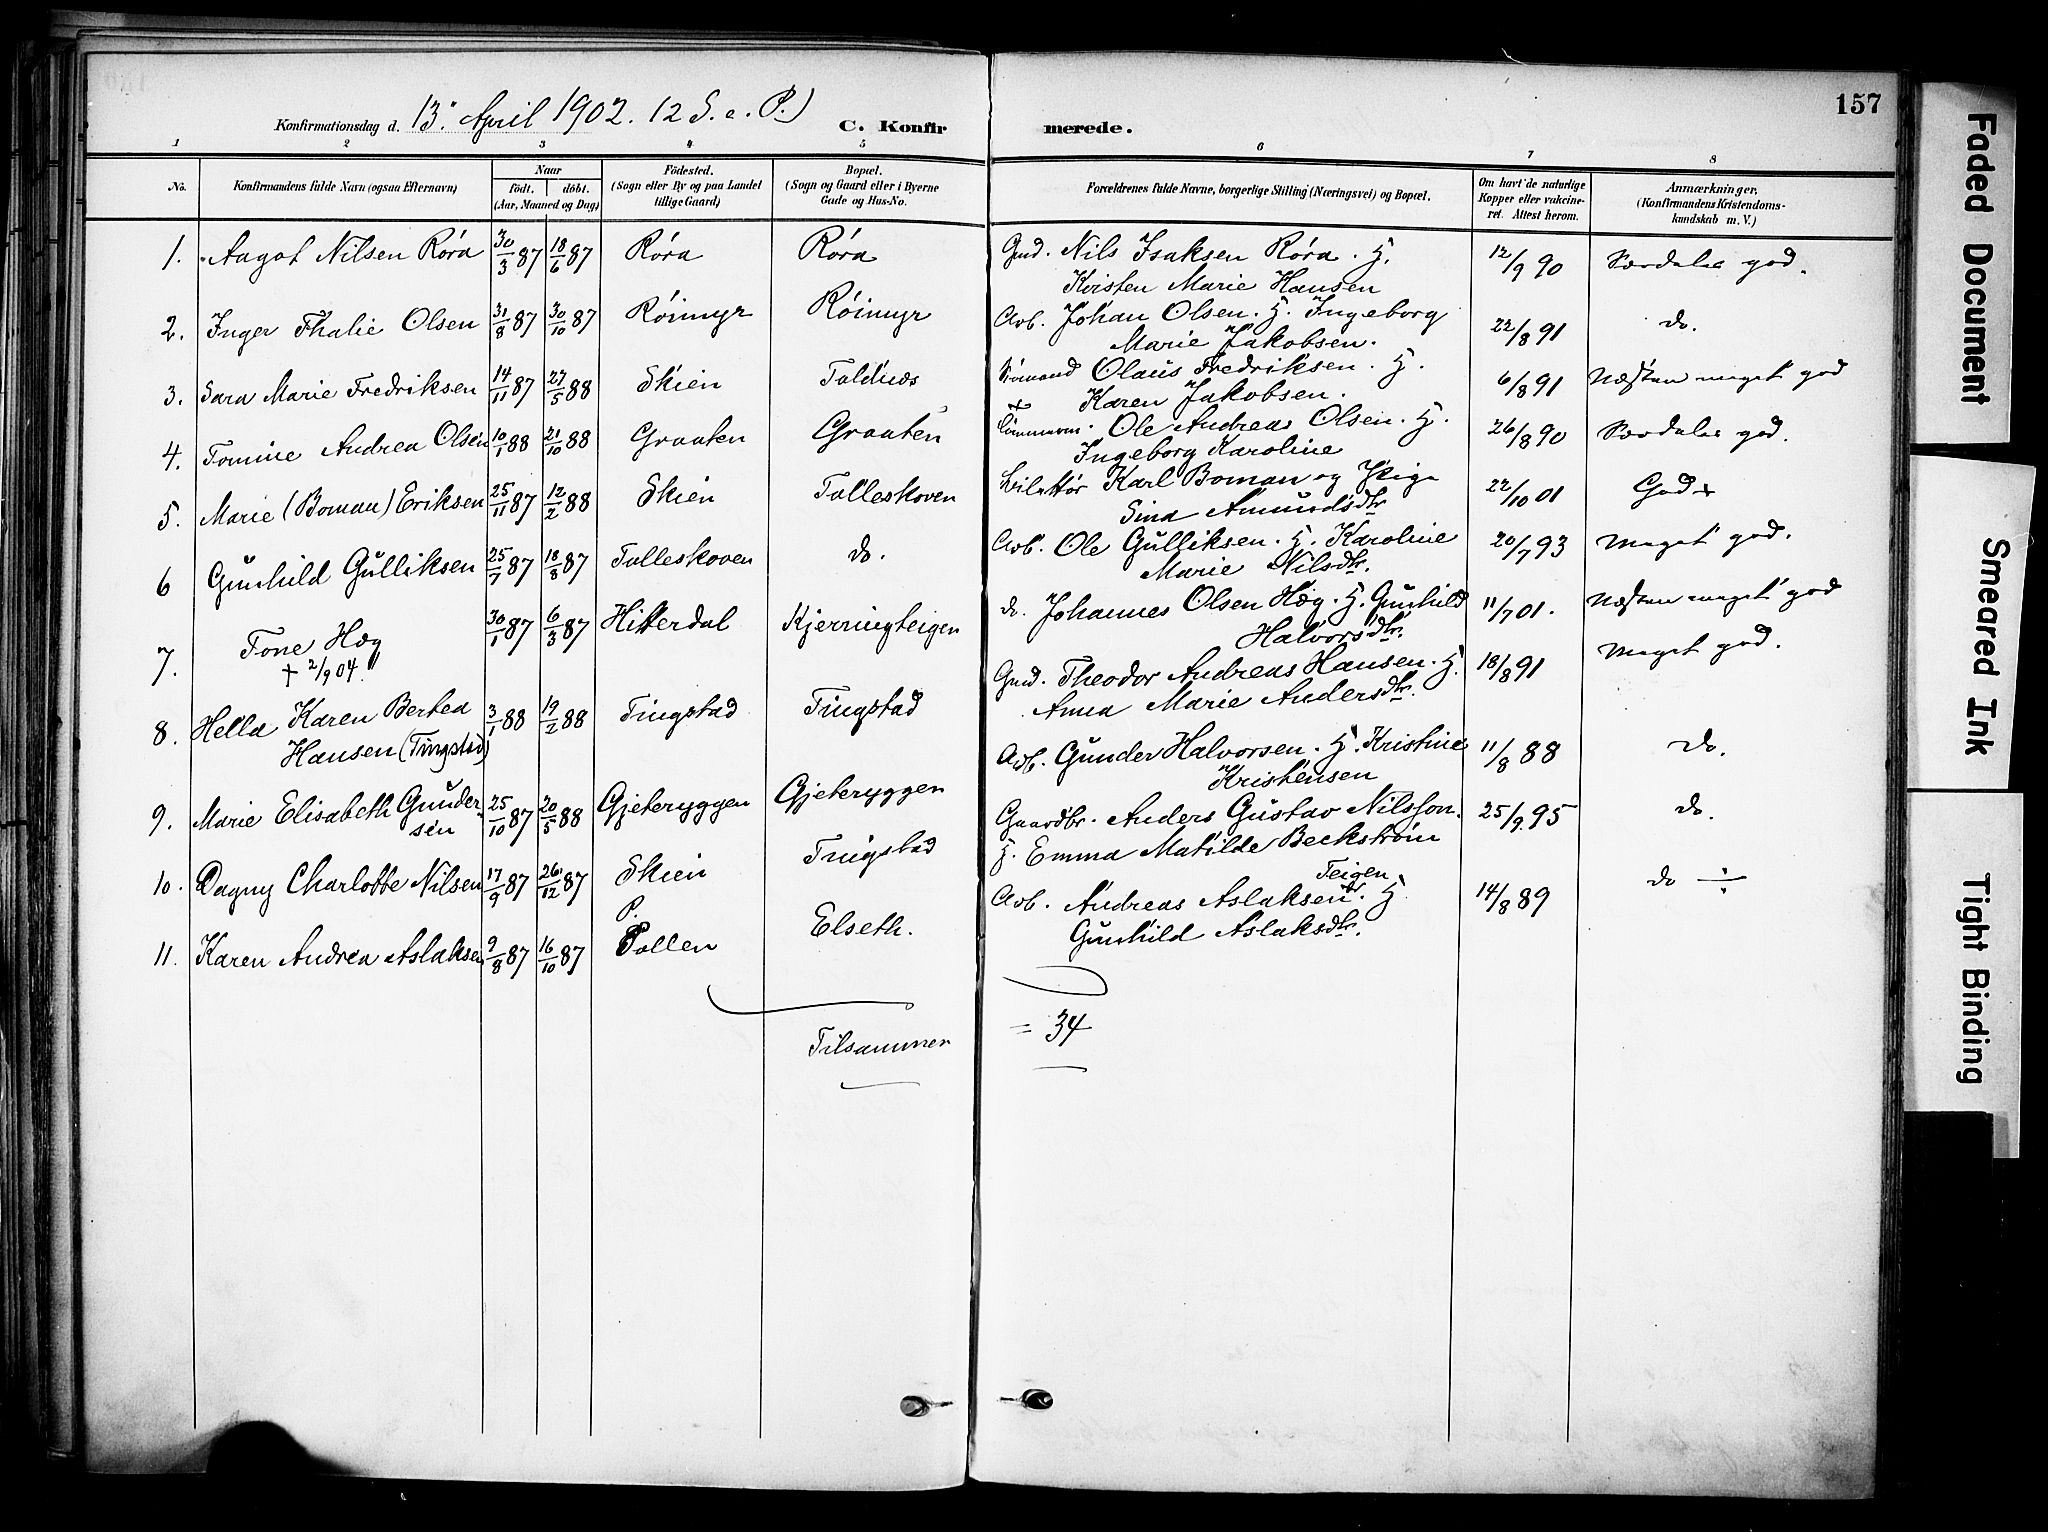 157
Konfirmationsdag d. 13. April 1902. 12 S. e. P.)
C. Konfirmerede.
1 2 3 4 5 6 7 8
No.
Konfirmandens fulde Navn (ogsaa Efternavn)
Naar
født. døbt.
(Aar, Maaned og Dag)
Fødested.
(Sogn eller By og paa Landet
tillige Gaard)
Bopæl.
(Sogn og Gaard eller i Byerne
Gade og Hus-No.
Forældrenes fulde Navne, borgerlige Stilling (Næringsvei) og Bopæl.
Om havt de naturlige
Kopper eller vakcine-
ret. Attest herom.
Anmærkninger.
(Konfirmandens Kristendoms-
kundskab m. V.)
1. Aagot Nilsen Røra 30/3 87 18/6 87 Røra Røra Gmd. Nils Isaksen Røra. H. 12/9 90 Særdeles god.
Kirsten Marie Hansen
2. Inger Thalie Olsen 31/8 87 30/10 87 Røimyr Røimyr Arb. Johan Olsen. H. Ingeborg 22/8 91 do.
Marie Jakobsen.
3. Sara Marie Fredriksen 14/11 87 27/5 88 Skien Foldnes Sømand Olaus Fredriksen. H. 6/8 91 Næsten meget god
Karen Jakobsen.
4. Tomine Andrea Olsen 10/1 88 21/10 88 Graaten Graaten + Tømmerm. Ole Andreas Olsen. H. 26/8 90 Særdeles god.
Ingeborg Karoline
5. Marie (Boman) Eriksen 25/11 87 12/2 88 Skien Folleskoven Karl Boman og Pige 22/10 01 God +
Sina Amundsdtr
6 Gunhild Gulliksen 25/7 87 18/8 87 Folleskoven do. Arb. Ole Gulliksen. H. Karoline 20/7 93 Meget god.
Marie Nilsdtr.
7. Tone Hæg 30/1 87 6/3 87 Hitterdal Kjerringteigen do. Johannes Olsen Hæg. H. Gunhild 11/7 01. Næsten meget god
+ 2/9 04.
Halvorsdtr.
8. Hella Karen Bertea 3/1 88 19/2 88 Tingstad Tingstad Gmd. Theodor Andreas Hansen. H. 18/8 91 Meget god.
Hansen (Tingstad)
Anna Marie Andersdtr.
9. Marie Elisabeth Gunder- 25/10 87 20/5 88 Gjeteryggen Gjeteryggen Arb. Gunder Halvorsen. H. Kristine 11/8 88 do.
sen
Kristensen
10. Dagny Charlotte Nilsen 17/9 87 26/12 87 Skien Tingstad Gaardbr. Anders Gustav Nilsson. 25/9 95 do.
H. Emma Matilde Beckstrøm
11. Karen Andrea Aslaksen 9/8 87 16/10 87 P. Pollen Elseth. Arb. Andreas Aslaksen. Teigen H. 14/8 89 do ÷
Gunhild Aslaksdtr.
Tilsammen = 34
Faded Document
Smeared Ink
Tight Binding